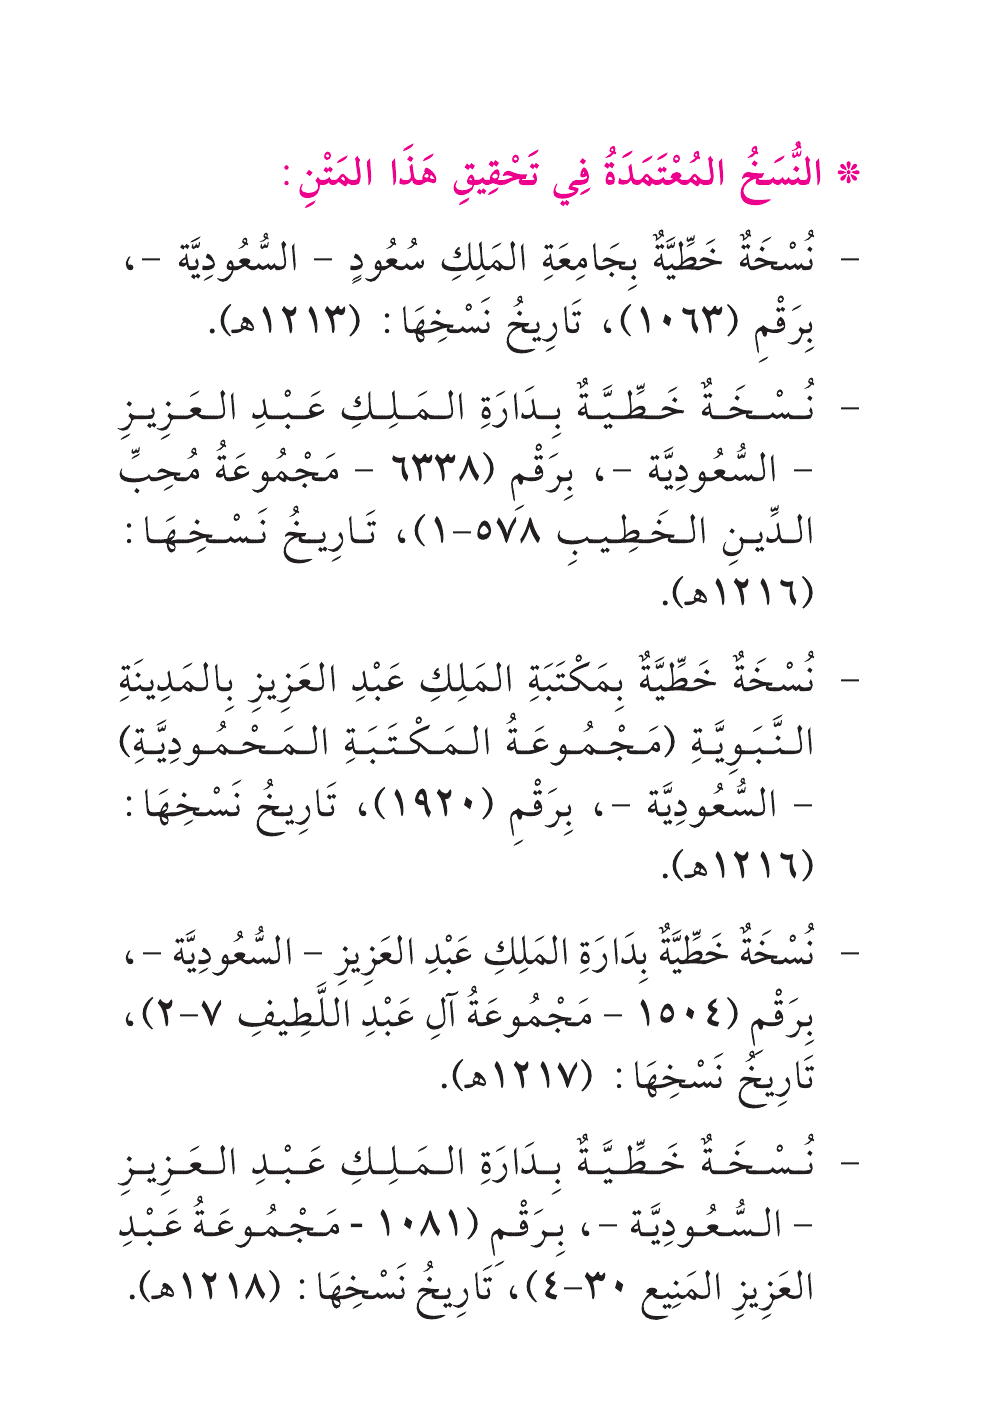 ❊ النُّسَخُ المُعْتَمَدَةُ فِي تَحْقِيقِ هَذَا المَتْنِ:
– نُسْخَةٌ خَطِّيَّةٌ بِجَامِعَةِ المَلِكِ سُعُودٍ – السُّعُودِيَّة –،
بِرَقْمِ (١٠٦٣)، تَارِيخُ نَسْخِهَا: (١٢١٣هـ).
– نُسْخَةٌ خَطِّيَّةٌ بِدَارَةِ المَلِكِ عَبْدِ العَزِيزِ
– السُّعُودِيَّة –، بِرَقْمِ (٦٣٣٨ – مَجْمُوعَةُ مُحِبِّ
الدِّينِ الخَطِيبِ ٥٧٨–١)، تَارِيخُ نَسْخِهَا:
(١٢١٦هـ).
– نُسْخَةٌ خَطِّيَّةٌ بِمَكْتَبَةِ المَلِكِ عَبْدِ العَزِيزِ بِالمَدِينَةِ
النَّبَوِيَّةِ (مَجْمُوعَةُ المَكْتَبَةِ المَحْمُودِيَّةِ)
– السُّعُودِيَّة –، بِرَقْمِ (١٩٢٠)، تَارِيخُ نَسْخِهَا:
(١٢١٦هـ).
– نُسْخَةٌ خَطِّيَّةٌ بِدَارَةِ المَلِكِ عَبْدِ العَزِيزِ – السُّعُودِيَّة –،
بِرَقْمِ (١٥٠٤ – مَجْمُوعَةُ آلِ عَبْدِ اللَّطِيفِ ٧–٢)،
تَارِيخُ نَسْخِهَا: (١٢١٧هـ).
– نُسْخَةٌ خَطِّيَّةٌ بِدَارَةِ المَلِكِ عَبْدِ العَزِيزِ
– السُّعُودِيَّة –، بِرَقْمِ (١٠٨١ - مَجْمُوعَةُ عَبْدِ
العَزِيزِ المَنِيع ٣٠–٤)، تَارِيخُ نَسْخِهَا: (١٢١٨هـ).